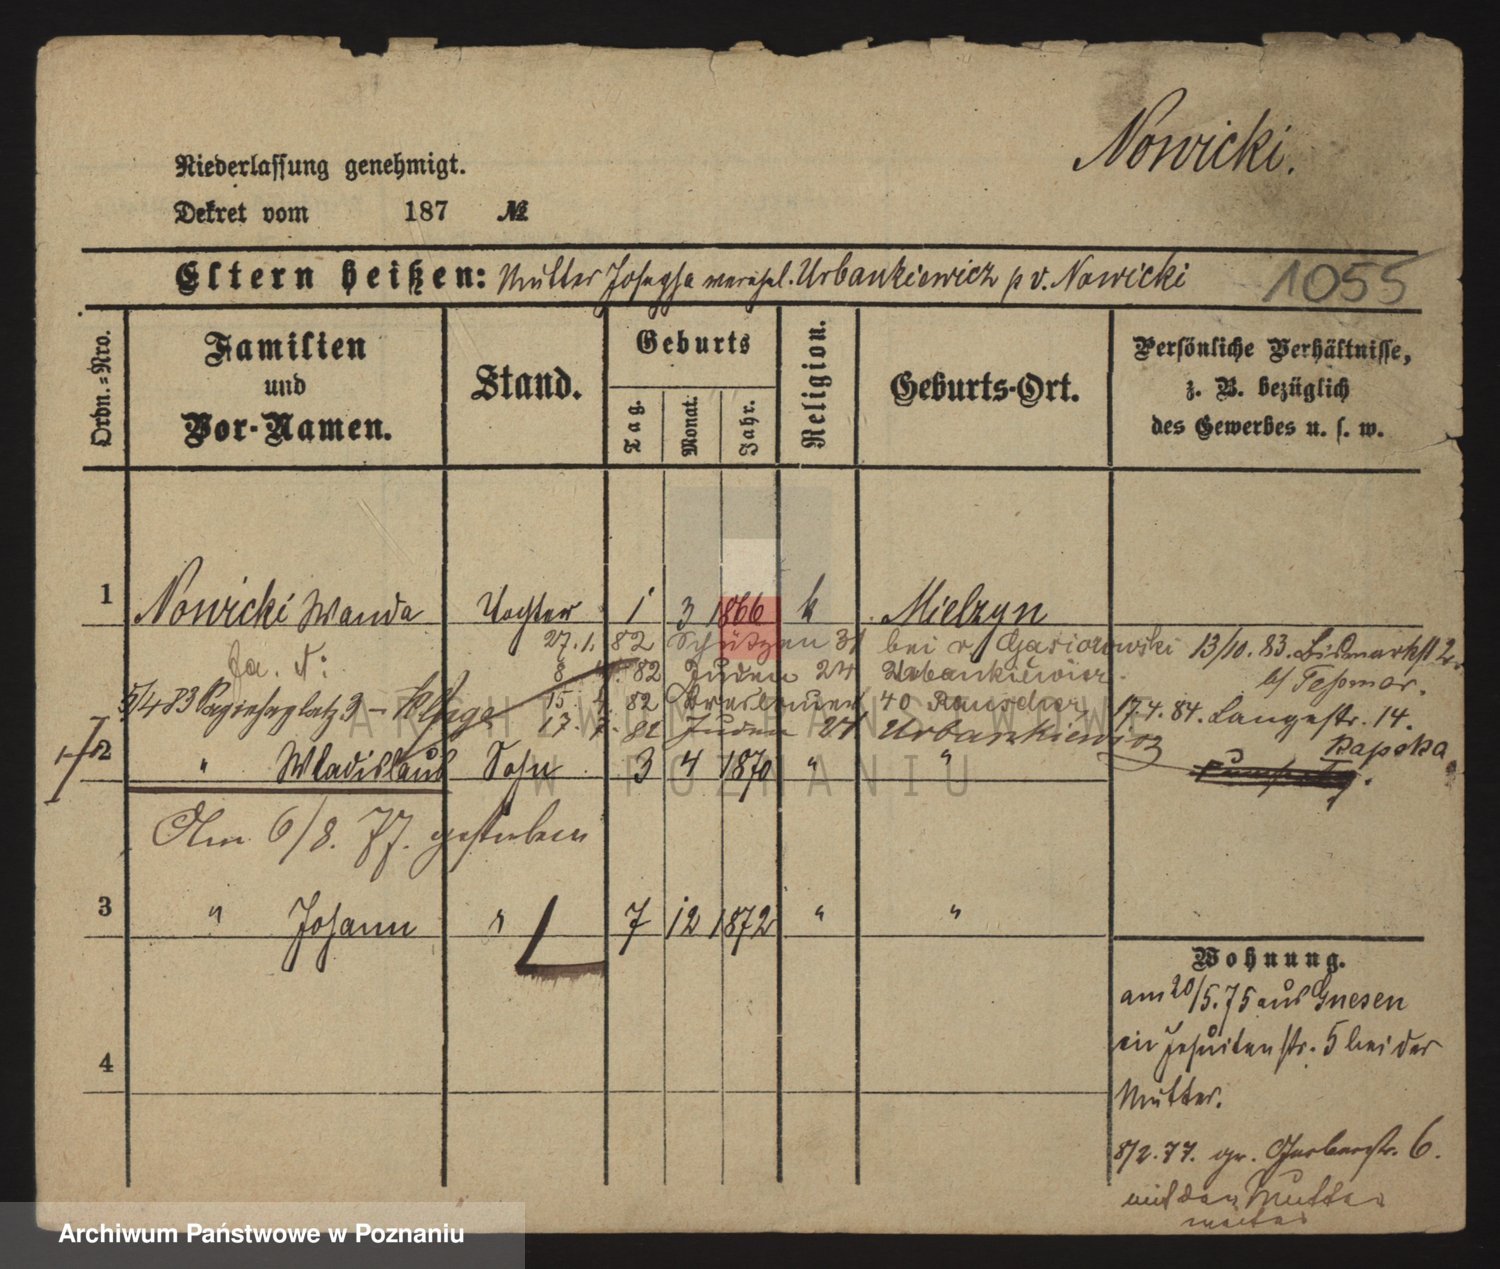 Nowicki.
Niederlassung genehmigt.
Dekret vom 187 №
Eltern heißen: Mutter Josepha verehel. Urbankiewicz p v. Nowicki
1055
Ordn.=Nro.
Familien
und
Vor-Namen.
Stand.
Geburts
Tag.
Monat.
Jahr.
Religion.
Geburts-Ort.
Persönliche Verhältnisse,
z. B. bezüglich
des Gewerbes u. s. w.
1 Nowicki Wanda Tochter 1 3 1866 k Mielzyn
27. 1. 82 Schützen 31 bei v. Gasiorowski 13/10. 83. Bismarckst 2.
8 82 Juden 27 Urbankiewicz.
5/4 83 Sapiehaplatz 3 – 15. 82 Breslauer 40 Rauscher 17.4. 84. Langestr. 14.
17. 7. 82 Juden 27 Urbankiewicz Kapska
2 " Wladislaus Sohn 3 4 1870 " "
Am 6/8. 77. gestorben
3 " Johann " 7 12 1872 " "
Wohnung.
am 20/5. 75 aus Gnesen
in Jesuitenstr. 5 bei der
Mutter.
4
8/2. 77. gr. Gerberstr. 6.
mit der Mutter
weiter
ARCHIWUM PAŃSTWOWE
W POZNANIU
Archiwum Państwowe w Poznaniu